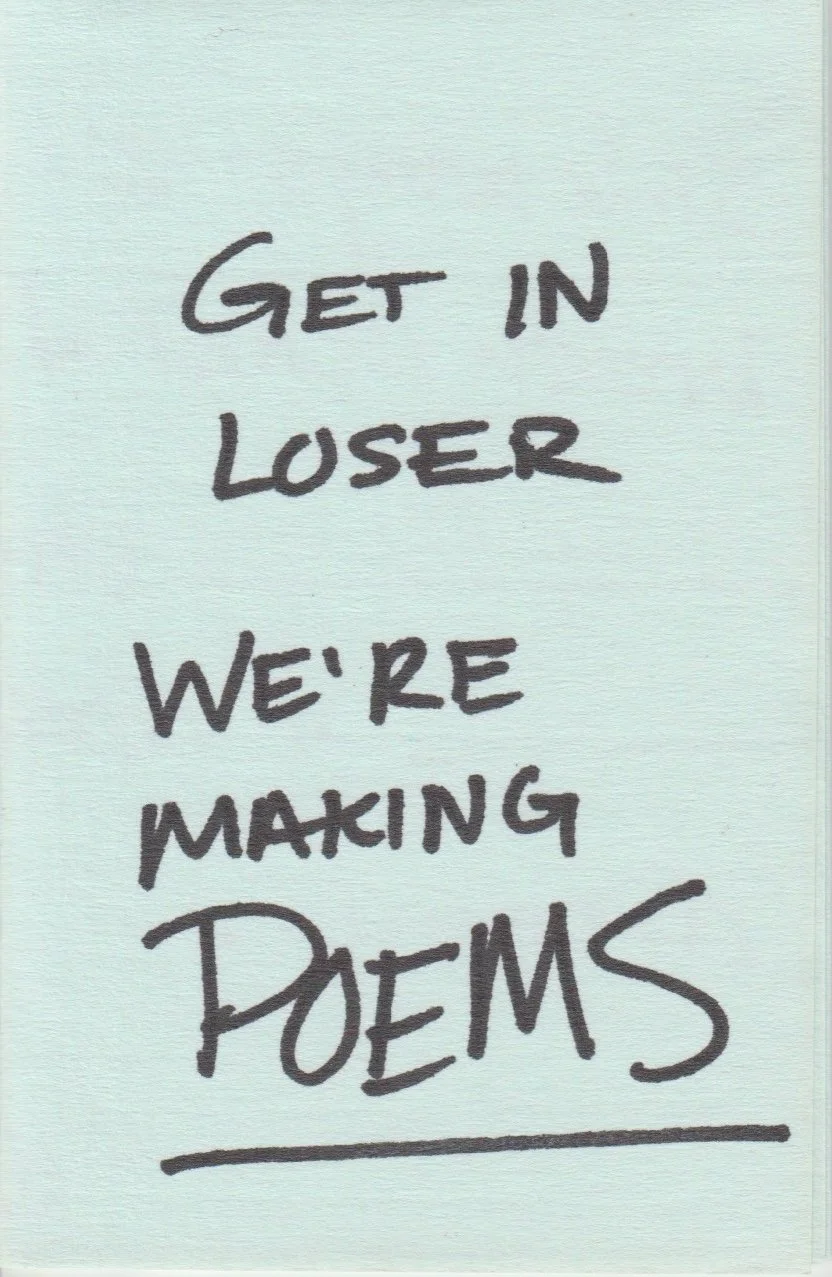 GET IN
LOSER
WE'RE
MAKING
POEMS